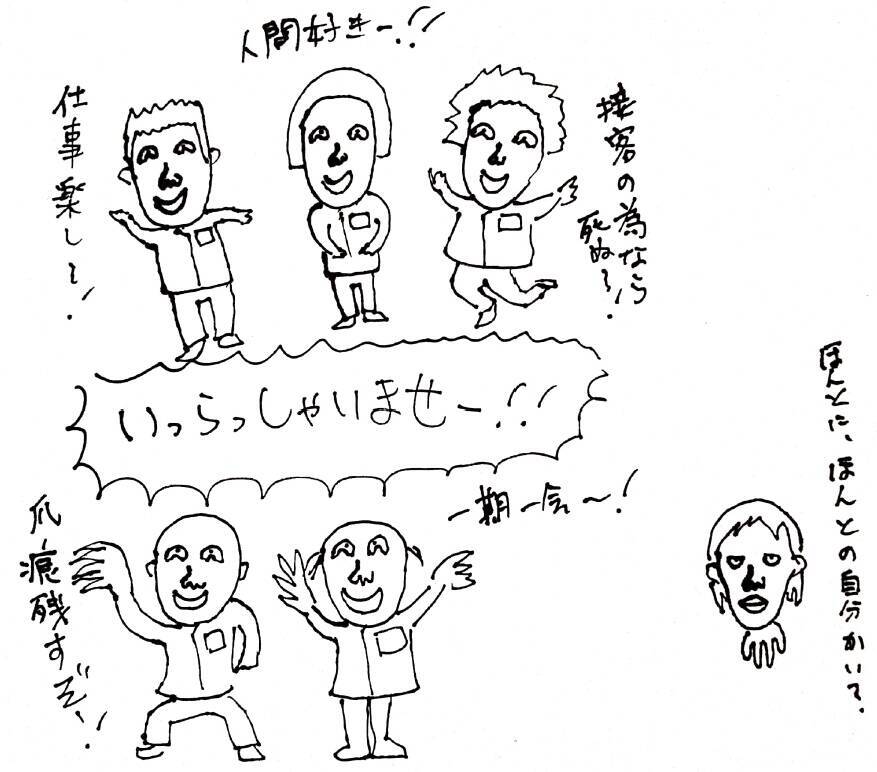 人間好きー!!
仕事楽し〜!
接客の為なら
死ぬ〜!
いらっしゃいませー!!
一期一会〜!
爪痕残すぞ〜!
ほんとに、ほんとの自分かいて。